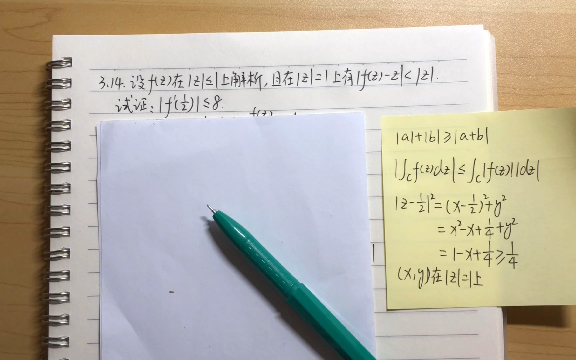 3.14. 设f(z)在|z|≤1上解析,且在|z|=1上有|f(z)-z|<|z|.
试证:|f'(½)|≤8
|a|+|b|≥|a+b|
|∫_C f(z)dz|≤∫_C|f(z)||dz|
|z-½|²=(x-½)²+y²
=x²-x+¼+y²
=1-x+¼≥¼
(x,y)在|z|=1上